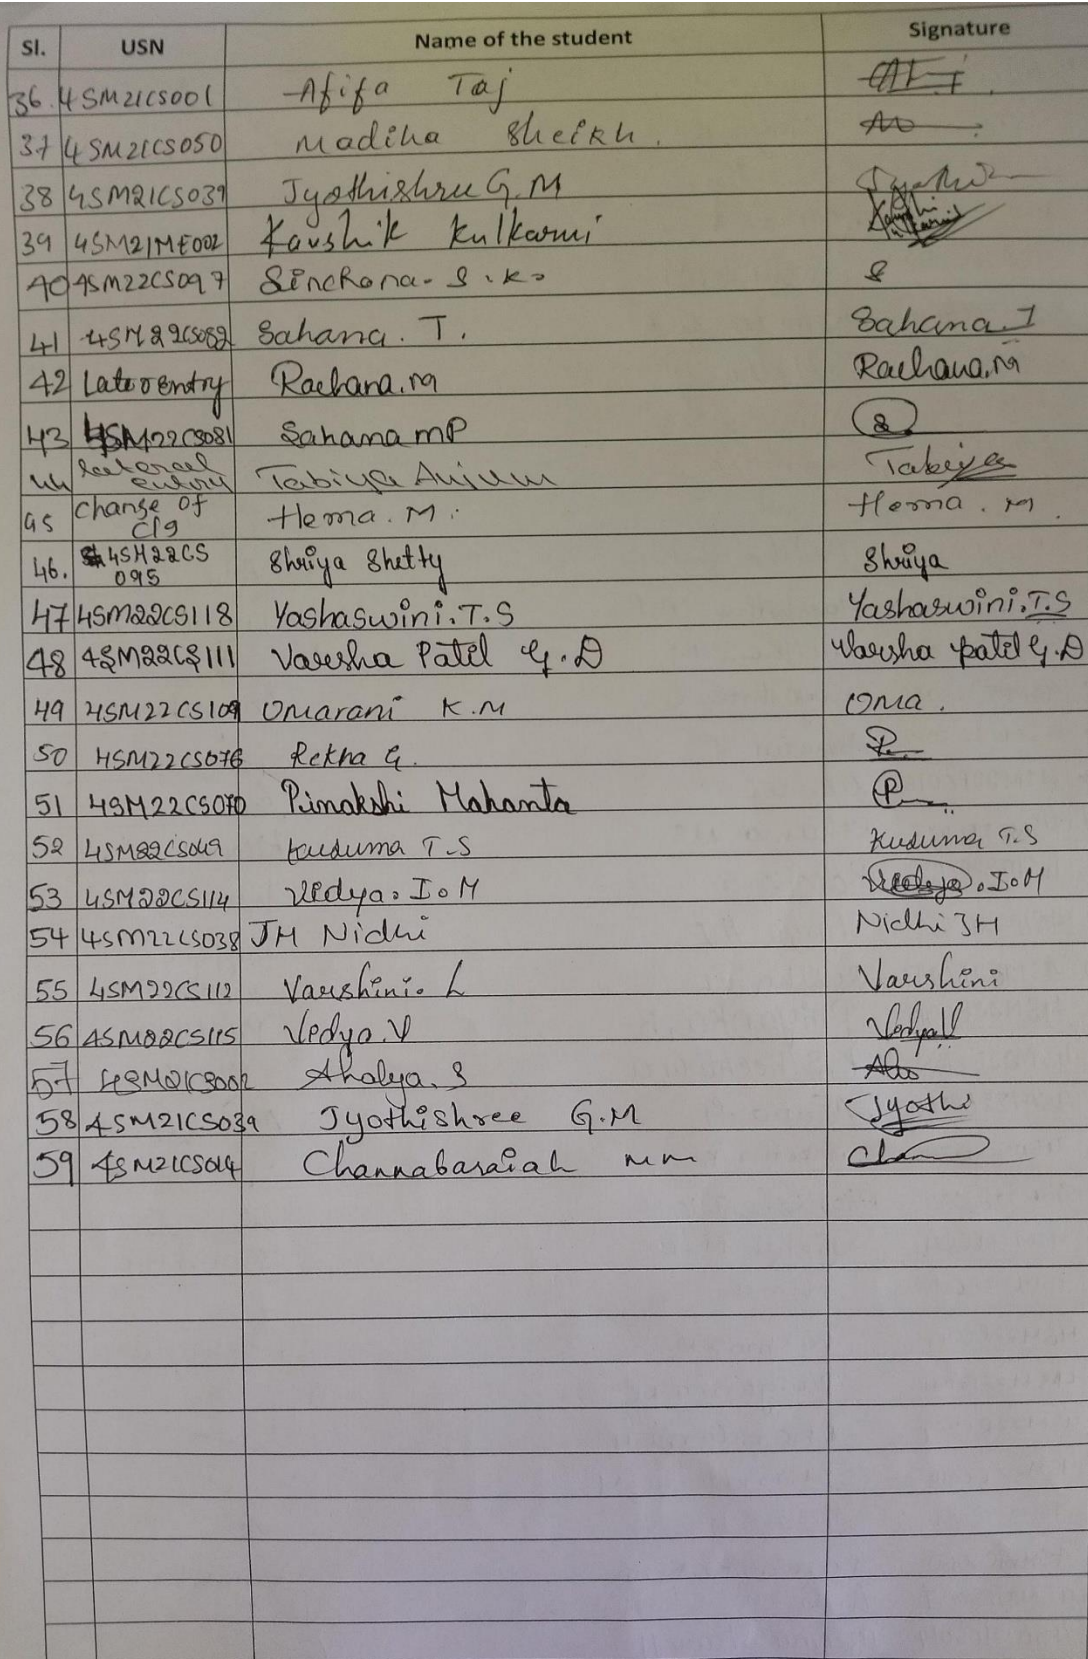 Sl. USN Name of the student Signature
36. 4SM21CS001 Afifa Taj
37 4SM21CS050 Madiha Sheikh.
38 4SM21CS039 Jyothishree G.M
39 4SM21ME002 Kaushik Kulkarni Kaushik Kulkarni
40 4SM22CS097 Sinchana. S.K. S
41 4SM22CS082 Sahana. T. Sahana T
42 Lateral entry Rachana.M Rachana.M
43 4SM22CS081 Sahana MP S
44 lateral entry Tabiya Anjum Tabiya
45 Change of clg Hema. M. Hema. M.
46. 4SM22CS095 Shriya Shetty Shriya
47 4SM22CS118 Yashaswini.T.S Yashaswini.T.S
48 4SM22CS111 Varsha Patil G.D Varsha patil G.D
49 4SM22CS109 Omarani K.M Oma.
50 4SM22CS076 Rekha G.
51 4SM22CS070 Pimakshi Mahanta P
52 4SM22CS049 Kusuma T.S Kusuma T.S
53 4SM22CS114 Vidya. I.M Vidya.I.M
54 4SM22CS038 JH Nidhi Nidhi JH
55 4SM22CS112 Varshini. L Varshini
56 4SM22CS115 Vidya.V Vidya.V
57 4SM21CS002 Ahalya. S
58 4SM21CS039 Jyothishree G.M Jyothi
59 4SM21CS014 Channabasaiah M M